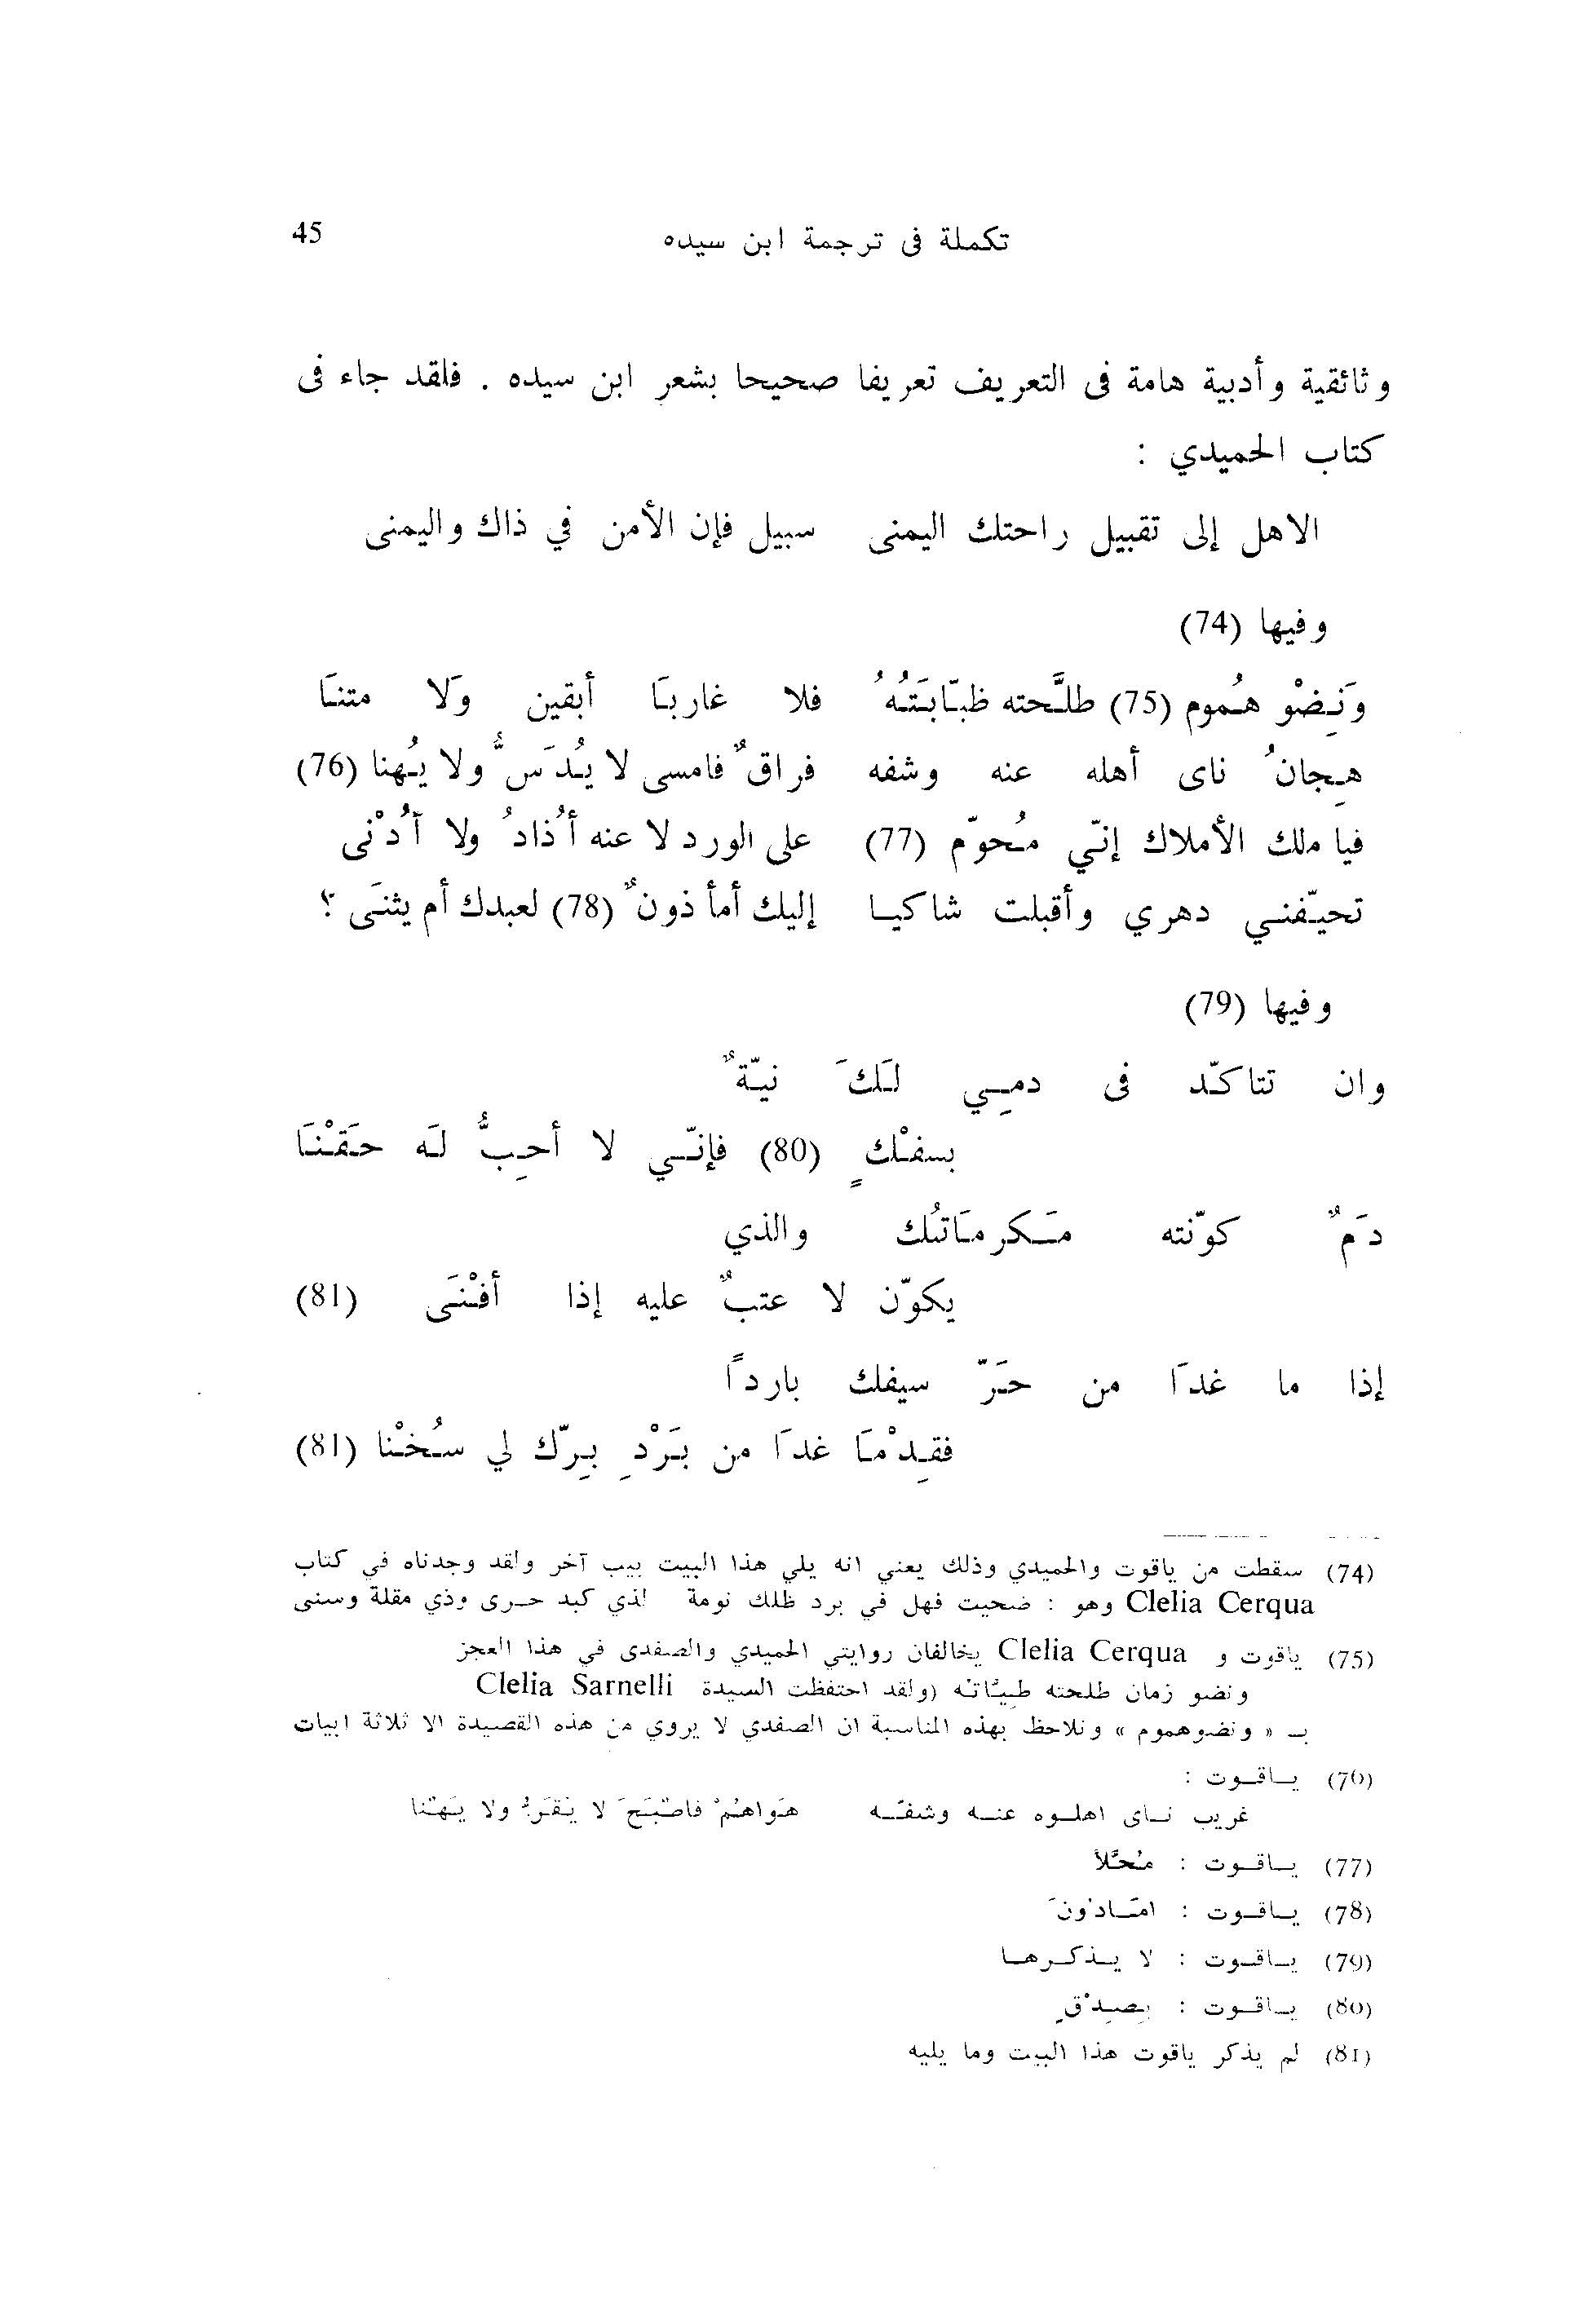 تكملة فى ترجمة ابن سيده 45
وثائقية وأدبية هامة فى التعريف تعريفا صحيحا بشعر ابن سيده . فلقد جاء فى
كتاب الحميدي :
الاهل إلى تقبيل راحتك اليمنى سبيل فإن الأمن في ذاك واليمنى
وفيها (74)
وَنِضْو هُموم (75) طلَّحته ظبّابَتُهُ فلا غاربَا أبقين وَلا متنَا
هِجانُ ناى أهله عنه وشفه فراقٌ فامسى لا يُدَسُّ ولا يُهنا (76)
فيا ملك الأملاك إنّي مُحوّم (77) على الورد لا عنه أُذادُ ولا أُدْنى
تحيّفني دهري وأقبلت شاكيا إليك أمأذونٌ (78) لعبدك أم يثنَى ؟
وفيها (79)
وان تتاكّد فى دمِي لَكَ نيّةٌ
بسفْكٍ (80) فإنّي لا أحِبُّ لَه حَقْنَا
دَمٌ كوّنته مَكرمَاتُك والذي
يكوّن لا عتبٌ عليه إذا أفْنَى (81)
إذا ما غدَا من حَرّ سيفك بارداً
فقِدْمَا غدَا من بَرْدِ بِرّك لي سُخْنا (81)
(74) سقطت من ياقوت والحميدي وذلك يعني انه يلي هذا البيت بيب آخر ولقد وجدناه في كتاب
Clelia Cerqua وهو : ضحيت فهل في برد ظلك نومة لذي كبد حرى وذي مقلة وسنى
(75) ياقوت و Clelia Cerqua يخالفان روايتي الحميدي والصفدى في هذا العجز
ونضو زمان طلحته طِيّاتُه (ولقد احتفظت السيدة Clelia Sarnelli
بـ « ونضوهموم » ونلاحظ بهذه المناسبة ان الصفدي لا يروي من هذه القصيدة الا ثلاثة ابيات
(76) ياقوت :
غريب ناى اهلوه عنه وشفّه هَواهُمْ فاصْبَحَ لا يَقَرُّ ولا يَهْنا
(77) ياقوت : مُحَّلأ
(78) ياقوت : امَاذونَ
(79) ياقوت : لا يذكرها
(80) ياقوت : بِصِدْقٍ
(81) لم يذكر ياقوت هذا البيت وما يليه